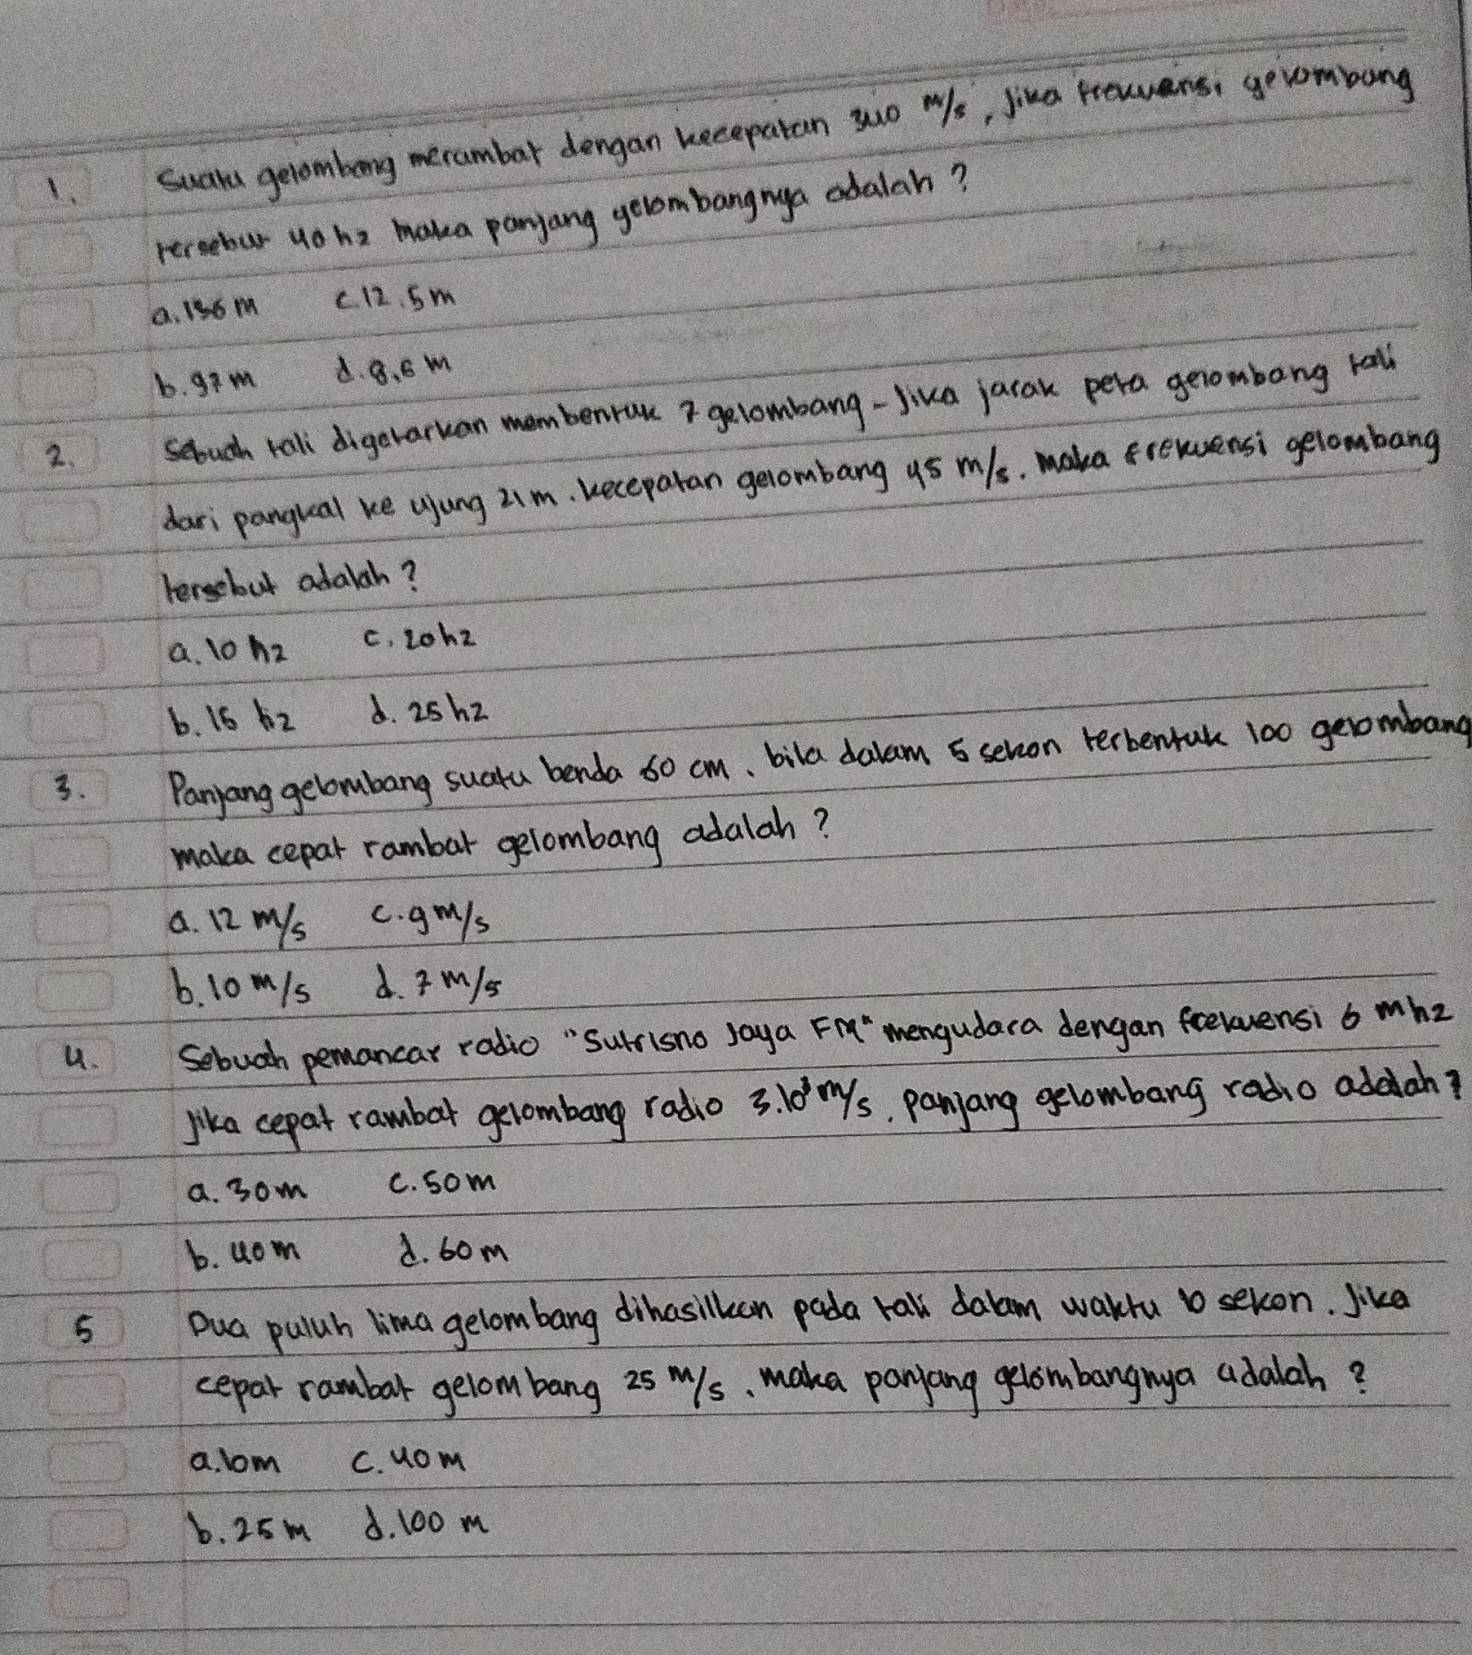 1. Suatu gelombang merambat dengan kecepatan 340 m/s, Jika frekuensi gelombang
tersebut 40 hz maka panjang gelombangnya adalah?
a. 136 m c. 12,5 m
b. 97 m d. 8,5 m
2. Sebuah tali digetarkan membentuk 7 gelombang - Jika jarak peta gelombang tali
dari pangkal ke ujung 21 m. kecepatan gelombang 45 m/s. maka frekuensi gelombang
tersebut adalah?
a. 10 hz c. 20 hz
b. 15 hz d. 25 hz
3. Panjang gelombang suatu benda 60 cm, bila dalam 5 sekon terbentuk 100 gelombang
maka cepat rambat gelombang adalah?
a. 12 m/s c. 9 m/s
b. 10 m/s d. 7 m/s
4. Sebuah pemancar radio "Sutrisno Jaya FM" mengudara dengan frekuensi 6 mhz
Jika cepat rambat gelombang radio 3.10⁸ m/s, panjang gelombang radio adalah?
a. 30 m c. 50 m
b. 40 m d. 60 m
5 Dua puluh lima gelombang dihasilkan pada tali dalam waktu 10 sekon. Jika
cepat rambat gelombang 25 m/s, maka panjang gelombangnya adalah?
a. 10m c. 40 m
b. 25 m d. 100 m